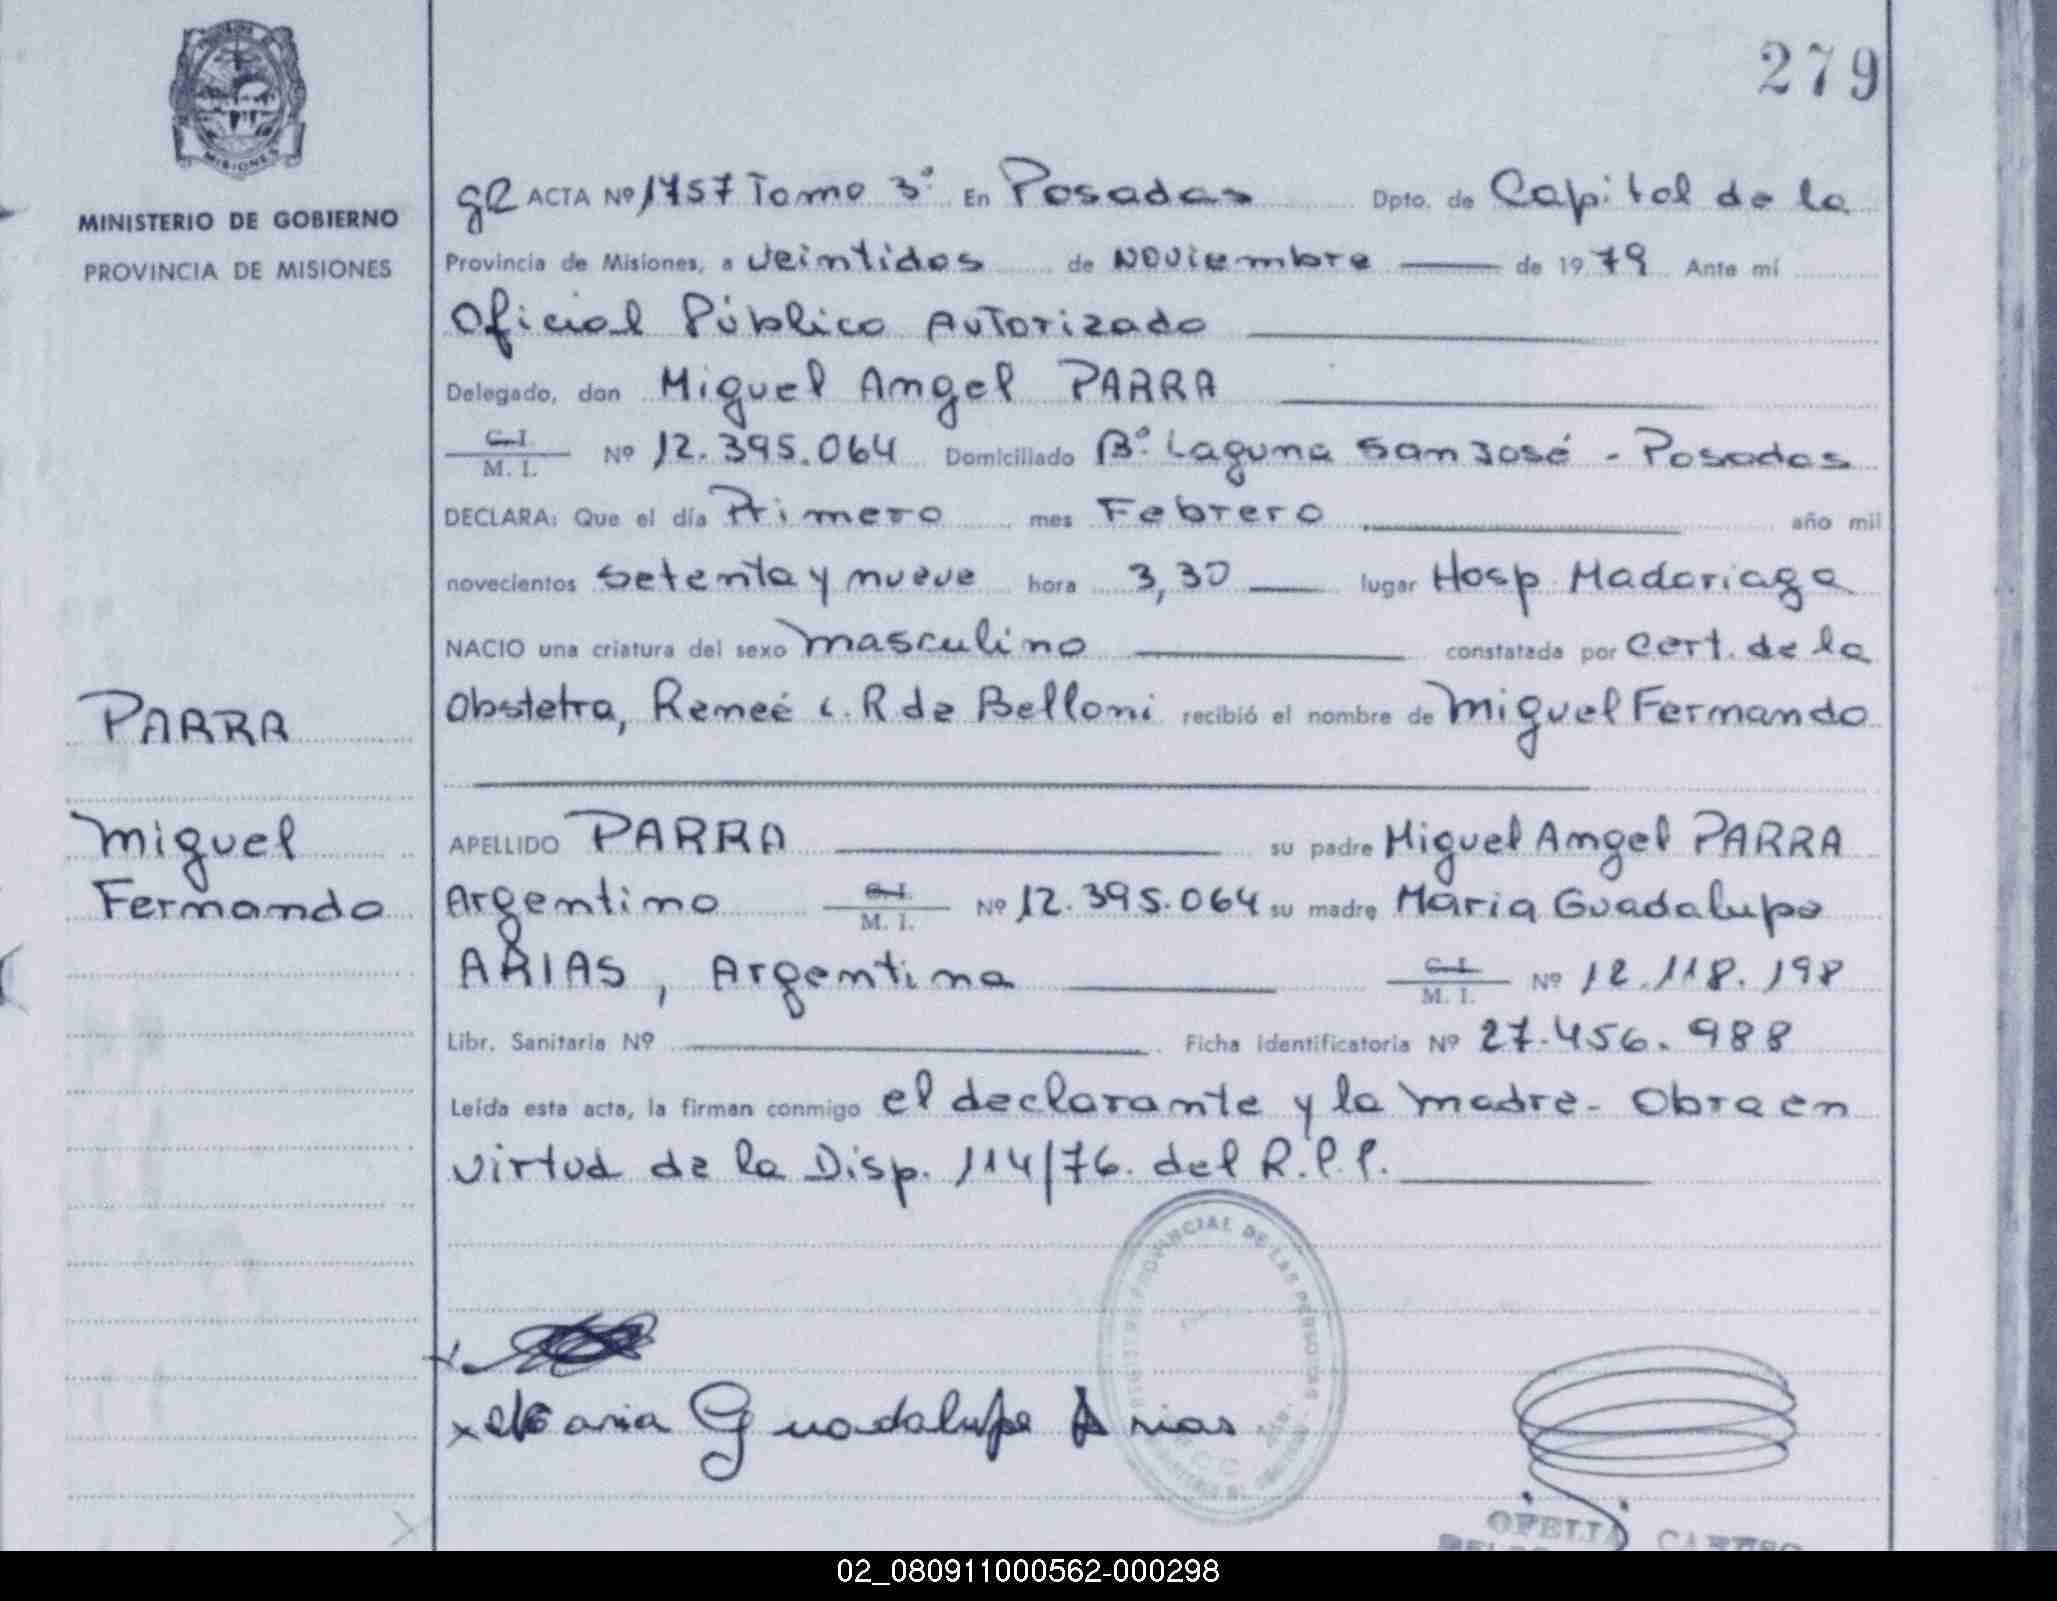 279
MISIONES
MINISTERIO DE GOBIERNO
PROVINCIA DE MISIONES
gR ACTA Nº 1757 Tomo 3º En Posadas Dpto. de Capital de la
Provincia de Misiones, a veintidos de Noviembre de 1979 Ante mí
Oficial Público Autorizado
Delegado, don Miguel Angel PARRA
C.I.
M. I. Nº 12.395.064 Domiciliado Bº Laguna San José - Posadas
DECLARA: Que el día Primero mes Febrero año mil
novecientos setenta y nueve hora 3,30 lugar Hosp. Madariaga
NACIO una criatura del sexo masculino constatada por Cert. de la
Obstetra, Reneé c. R de Belloni recibió el nombre de Miguel Fernando
PARRA
Miguel
Fernando
APELLIDO PARRA su padre Miguel Angel PARRA
Argentino C.I.
M. I. Nº 12.395.064 su madre Maria Guadalupe
ARIAS, Argentina C.I.
M. I. Nº 12.118.198
Libr. Sanitaria Nº Ficha Identificatoria Nº 27.456.988
Leída esta acta, la firman conmigo el declarante y la madre- Obra en
virtud de la Disp. 114/76. del R.P.P.
PROVINCIAL DE LAS PERSONAS
x Maria Guadalupe Arias
OFELIA CARUSO
02_080911000562-000298